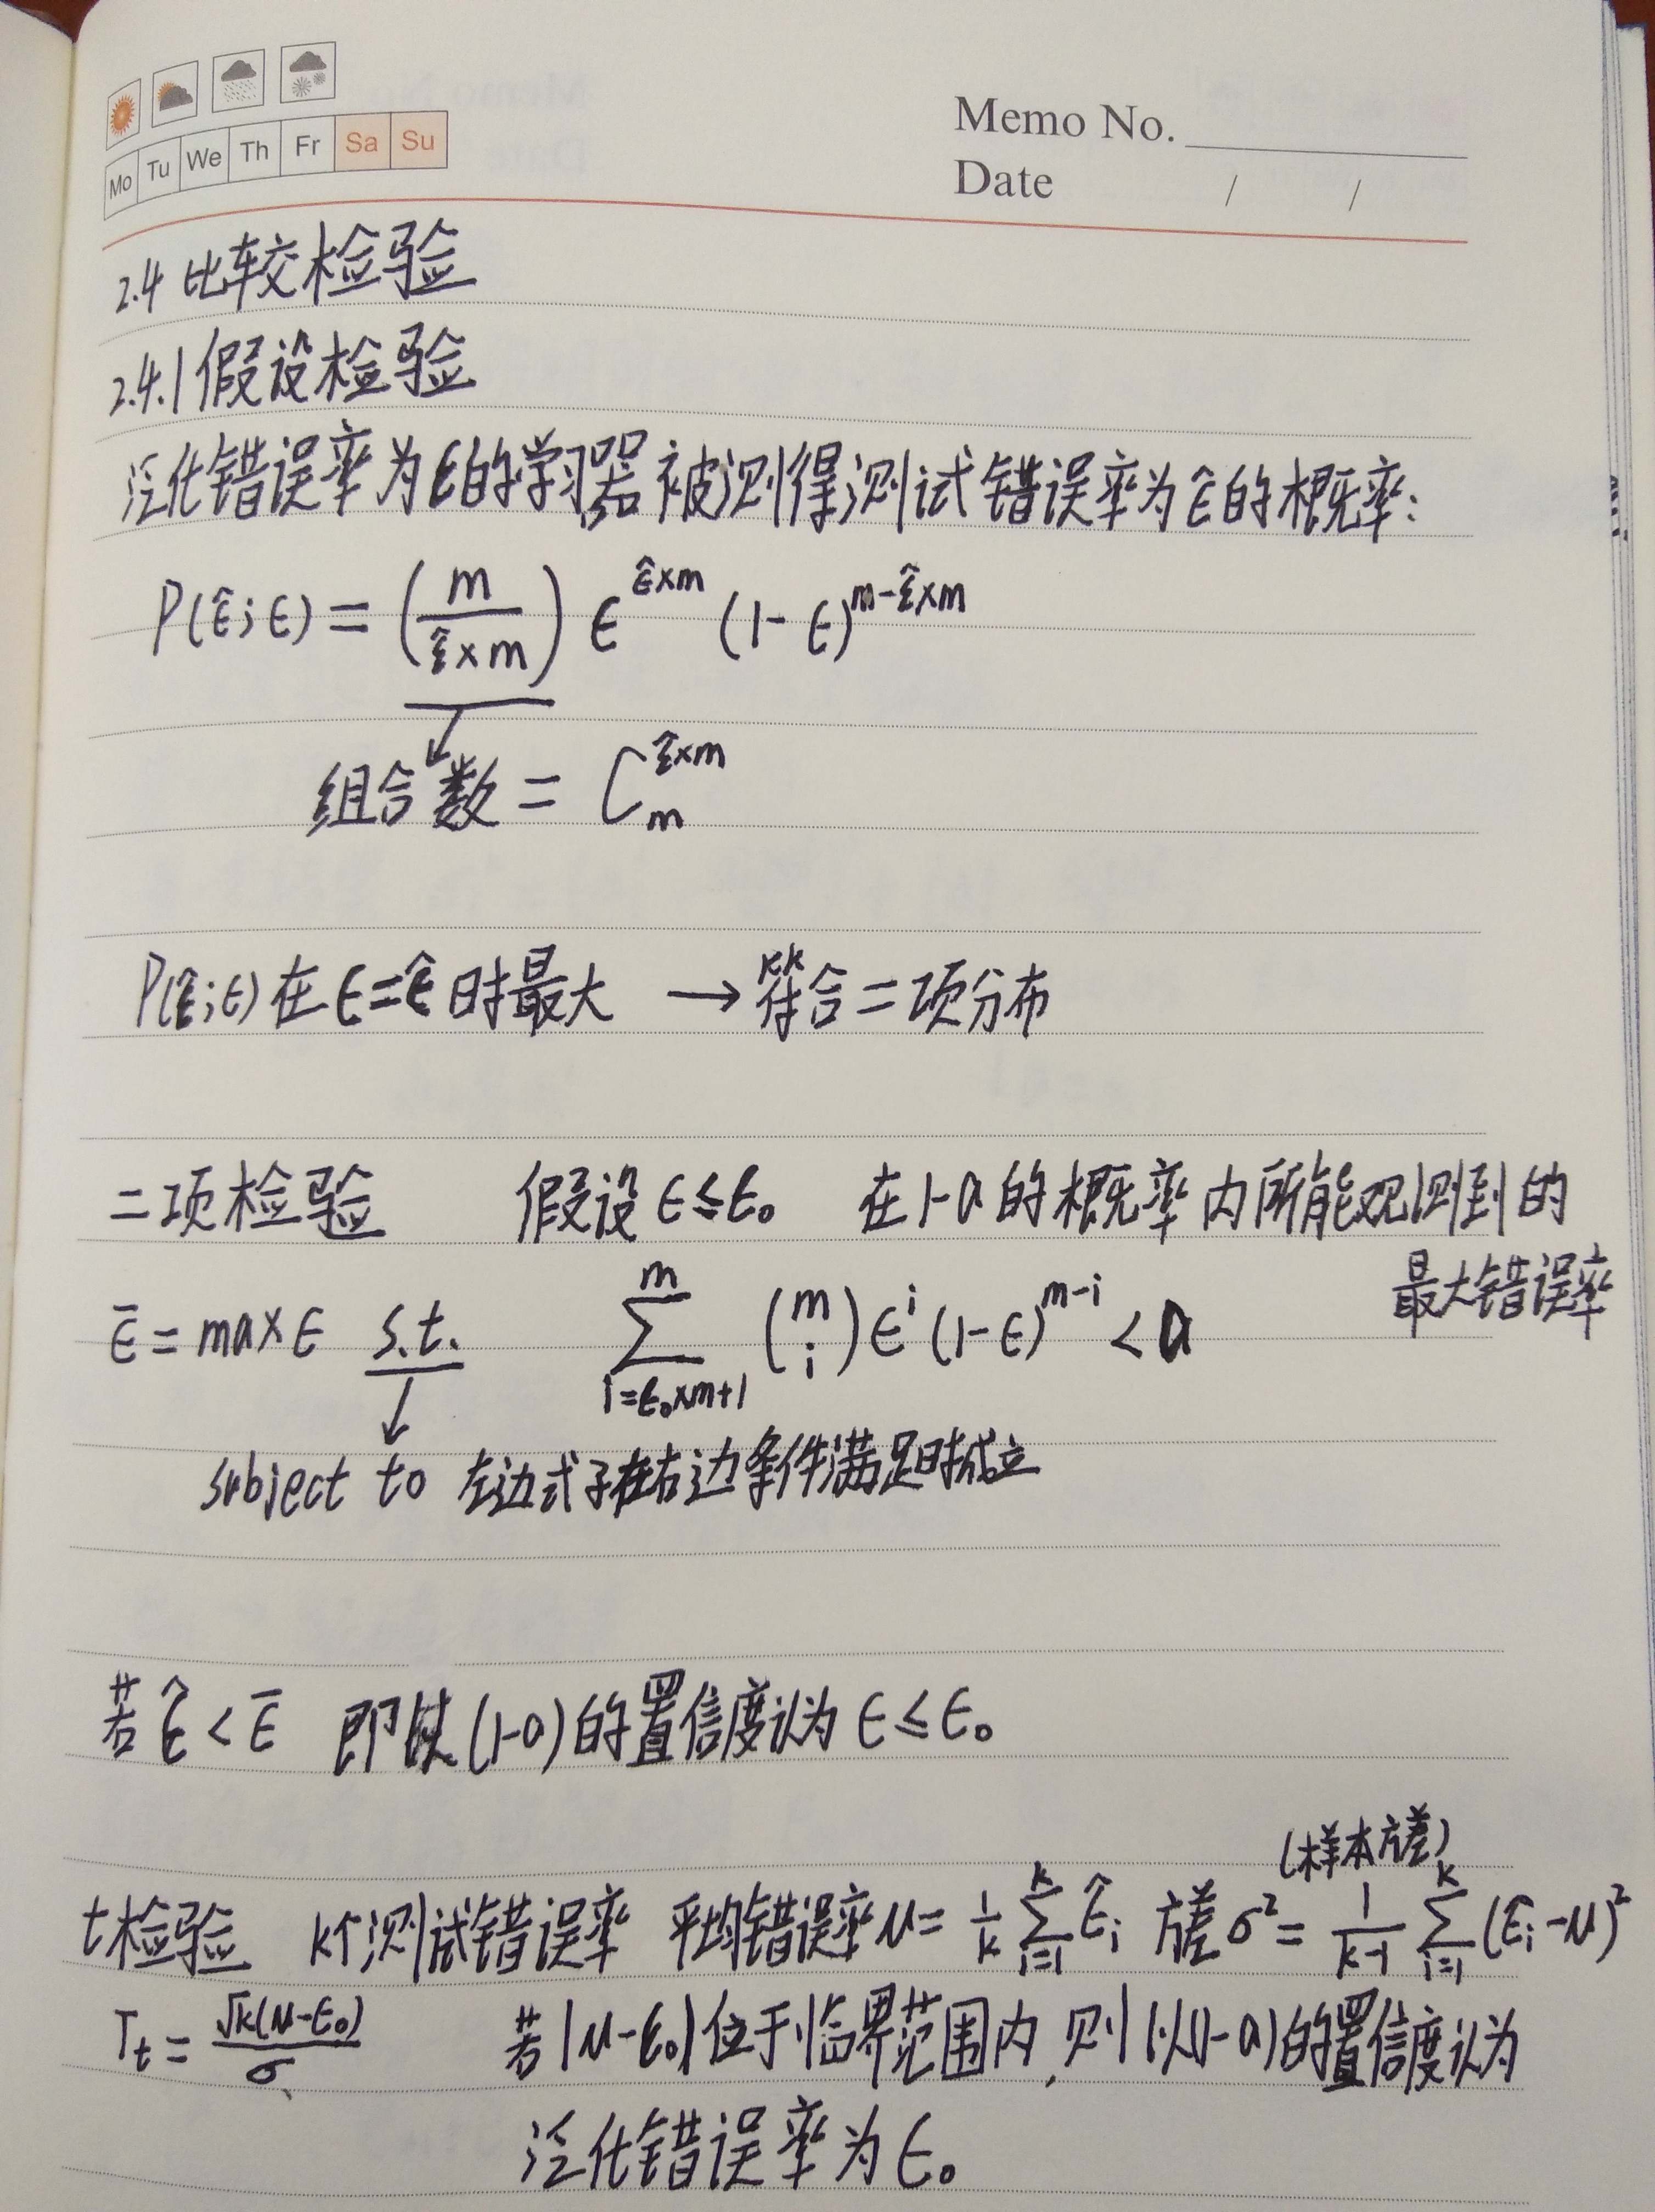 Mo Tu We Th Fr Sa Su
Memo No.
Date / /
2.4 比较检验
2.4.1 假设检验
泛化错误率为ϵ的学习器被测得测试错误率为ϵ̂的概率:
P(ϵ̂;ϵ) = (m / ϵ̂×m) ϵ^(ϵ̂×m) (1-ϵ)^(m-ϵ̂×m)
↓
组合数 = C_m^(ϵ̂×m)
P(ϵ̂;ϵ) 在 ϵ=ϵ̂ 时最大 → 符合二项分布
二项检验 假设 ϵ≤ϵ₀ 在1-α的概率内所能观测到的
最大错误率
ϵ̄ = max ϵ s.t. ∑_(i=ϵ₀×m+1)^m (m i) ϵ^i (1-ϵ)^(m-i) < α
↓
subject to 左边式子在右边条件满足时成立
若 ϵ̂ < ϵ̄ 即以(1-α)的置信度认为 ϵ≤ϵ₀
(样本方差)
t检验 k个测试错误率 平均错误率μ= 1/k ∑_(i=1)^k ϵ̂_i 方差σ²= 1/(k-1) ∑_(i=1)^k (ϵ̂_i-μ)²
T_t = √k(μ-ϵ₀)/σ 若|μ-ϵ₀|位于临界范围内, 则以(1-α)的置信度认为
泛化错误率为ϵ₀